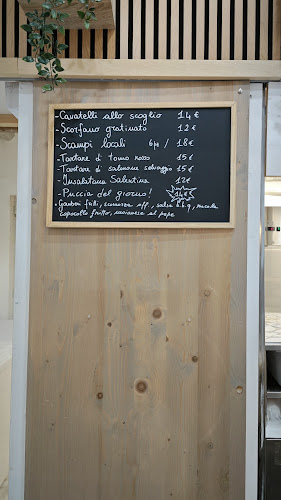 - Cavatelli allo scoglio 14 €
- Scorfano gratinato 12 €
- Scampi locali 6pz / 18 €
- Tartare di tonno rosso 15 €
- Tartare di salmone selvaggio 15 €
- Insalatona Salentina 12 €
- Puccia del giorno! 14 €
Gamberi fritti, scamorza aff, salsa b.b.q, rucola
capocollo fritto, maionese al pepe